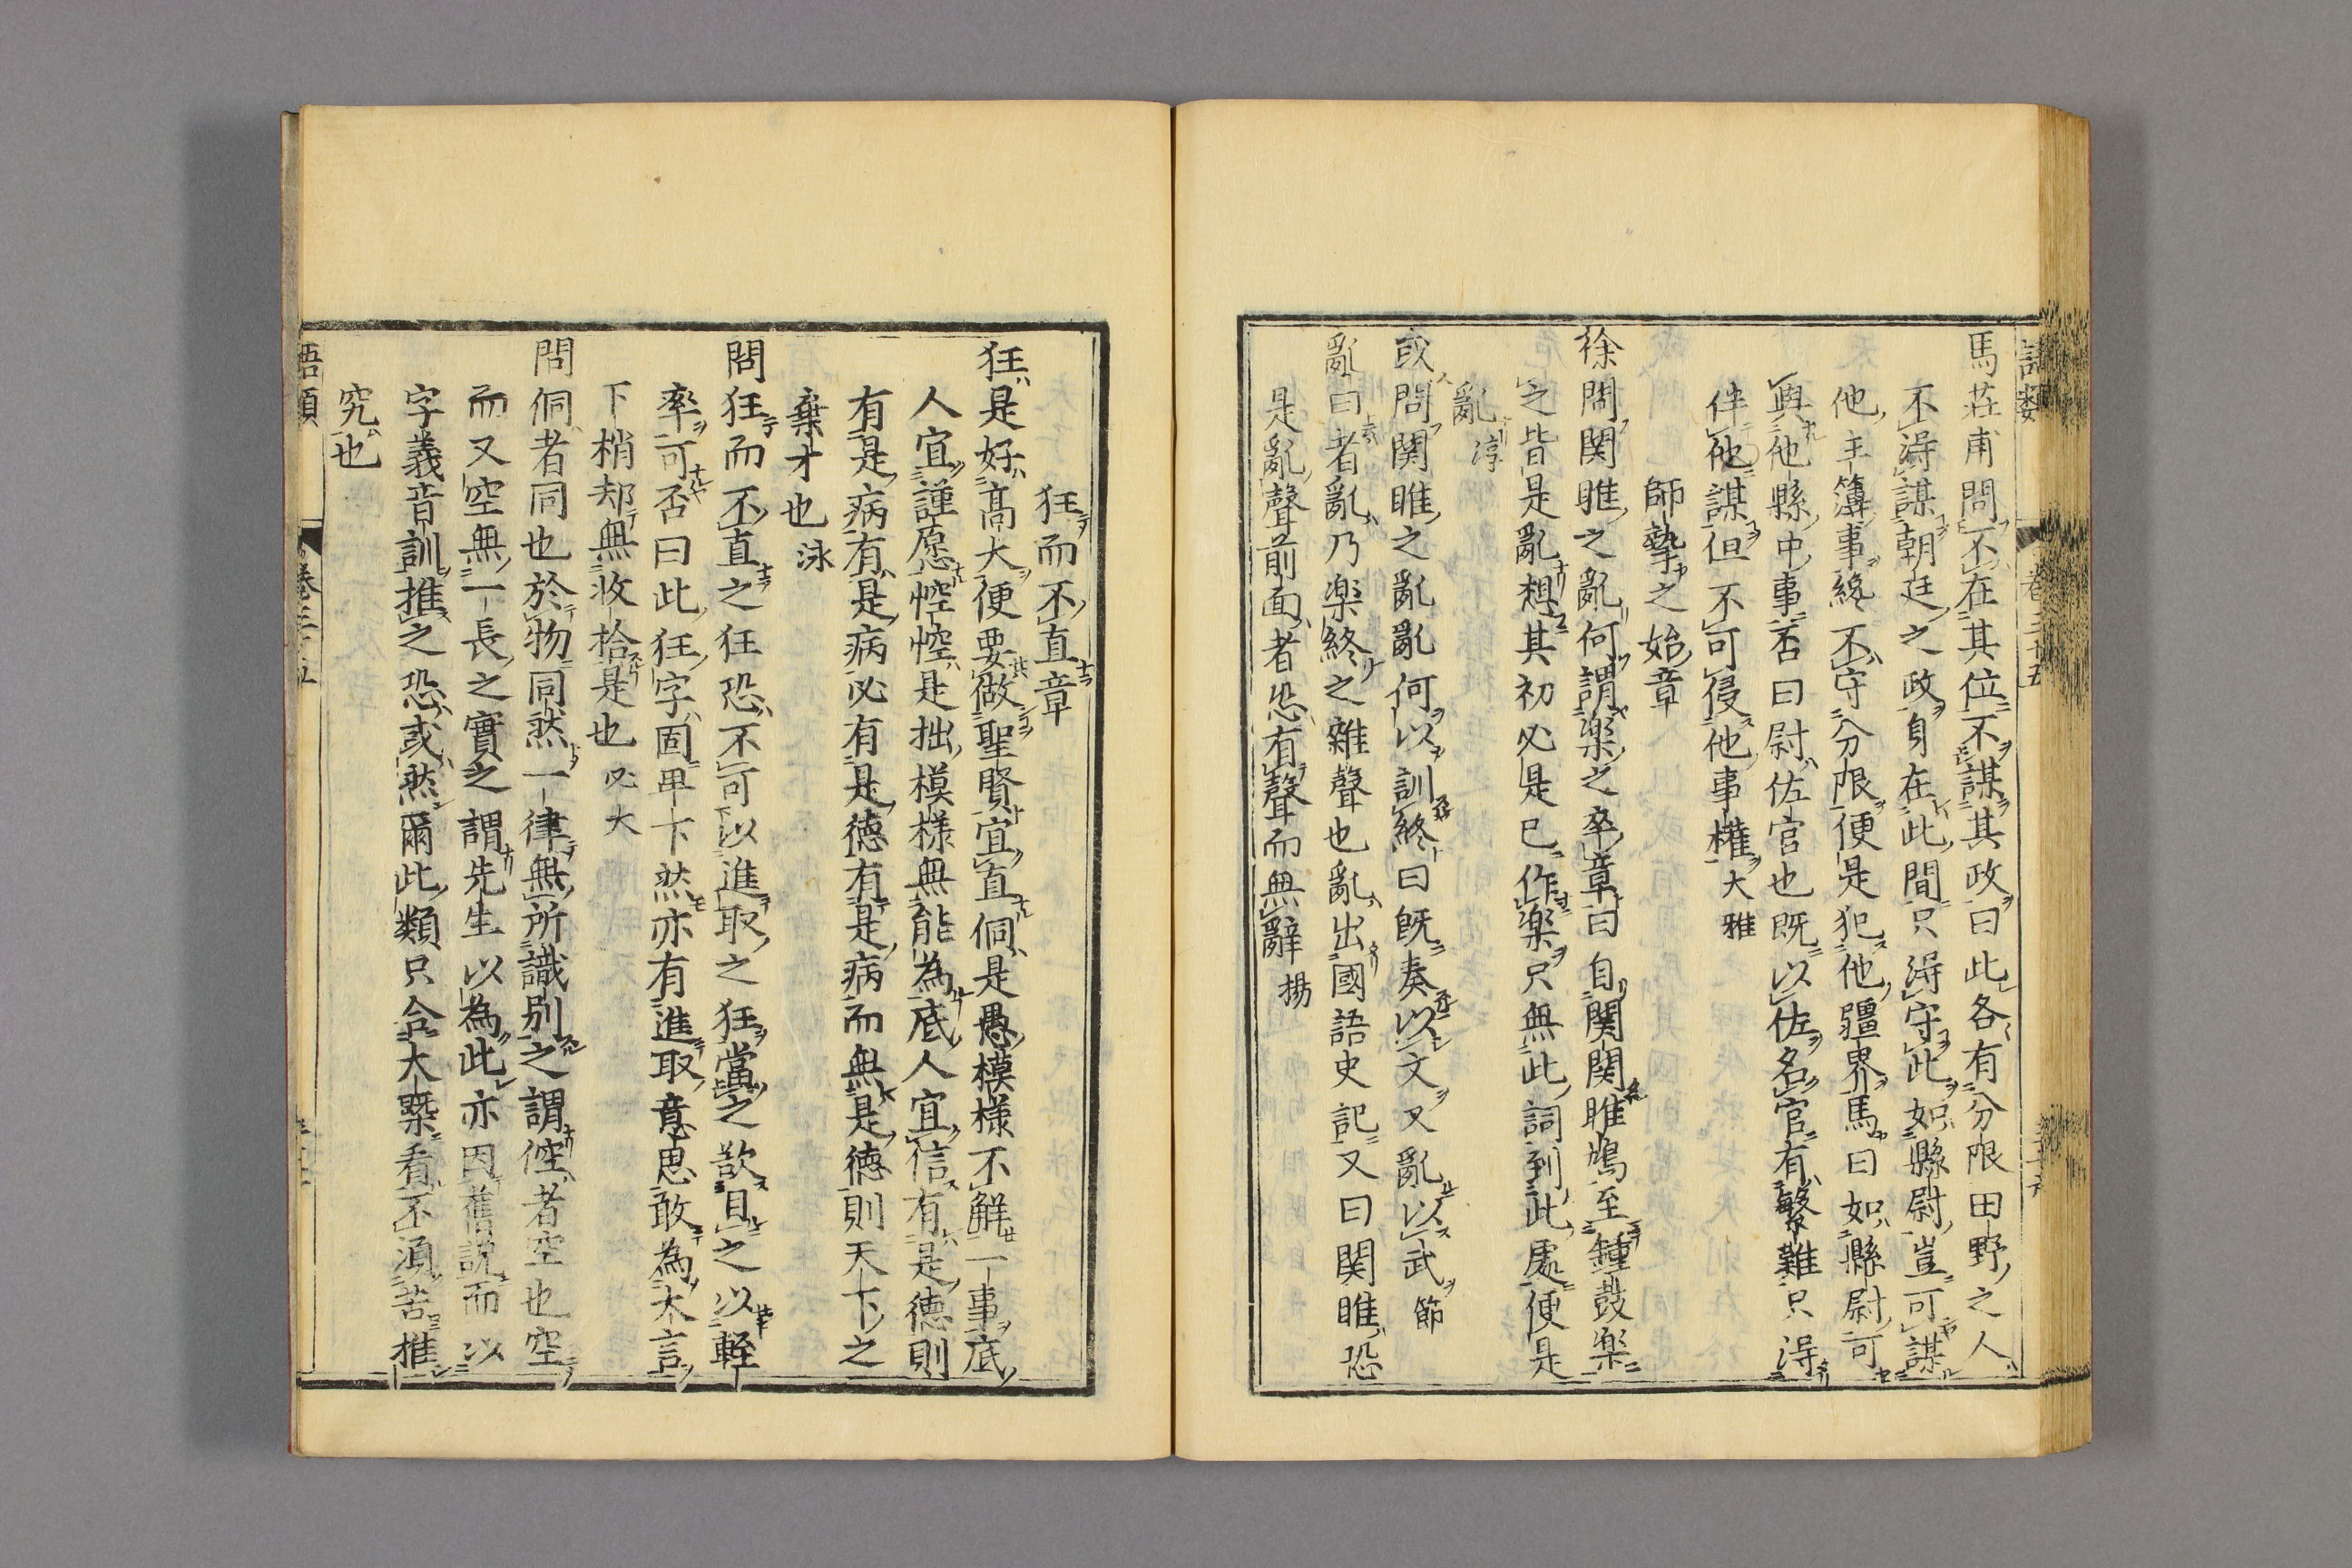 馬莊甫問不在其位不謀其政曰此各有分限田野之人
不淂謀朝廷之政身在此間只淂守此如縣尉豈可謀
他主簿事終不守分限便是犯他疆界馬曰如縣尉可
與他縣中事否曰尉佐官也既以佐名官有繁難只淂
伴他謀但不可侵他事權大雅
師摯之始章
徐問関雎之亂何謂樂之卒章曰自関関雎鳩至鍾鼓楽
之皆是亂想其初必是已作楽只無此詞到此處便是
亂淳
或問関雎之亂亂何以訓終曰既奏以文又亂以武節
亂曰者亂乃楽終之雜聲也亂出國語史記又曰関雎恐
是亂聲前面者恐有聲而無辭揚
狂而不直章
狂是好髙大便要做聖賢宜直侗是愚模様不解一事底
人宜謹愿悾悾是拙模様無能為底人宜信有是德則
有是病有是病必有是德有是病而無是徳則天下之
棄才也泳
問狂而不直之狂恐不可以進取之狂當之欲目之以輕
率可否曰此狂字固卑下然亦有進取意思敢為大言
下梢却無收拾是也必大
問侗者同也於物同然一律無所識别之謂悾者空也空
而又空無一長之實之謂先生以為此亦因舊説而以
字義音訓推之恐或然爾此類只合大槩看不湏苦推
究也
語類 卷三十五